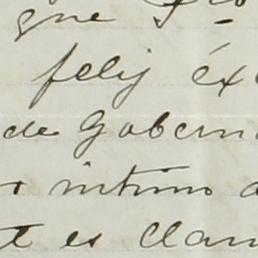 que
feliz éx
de Gobern
intimo a
es clam